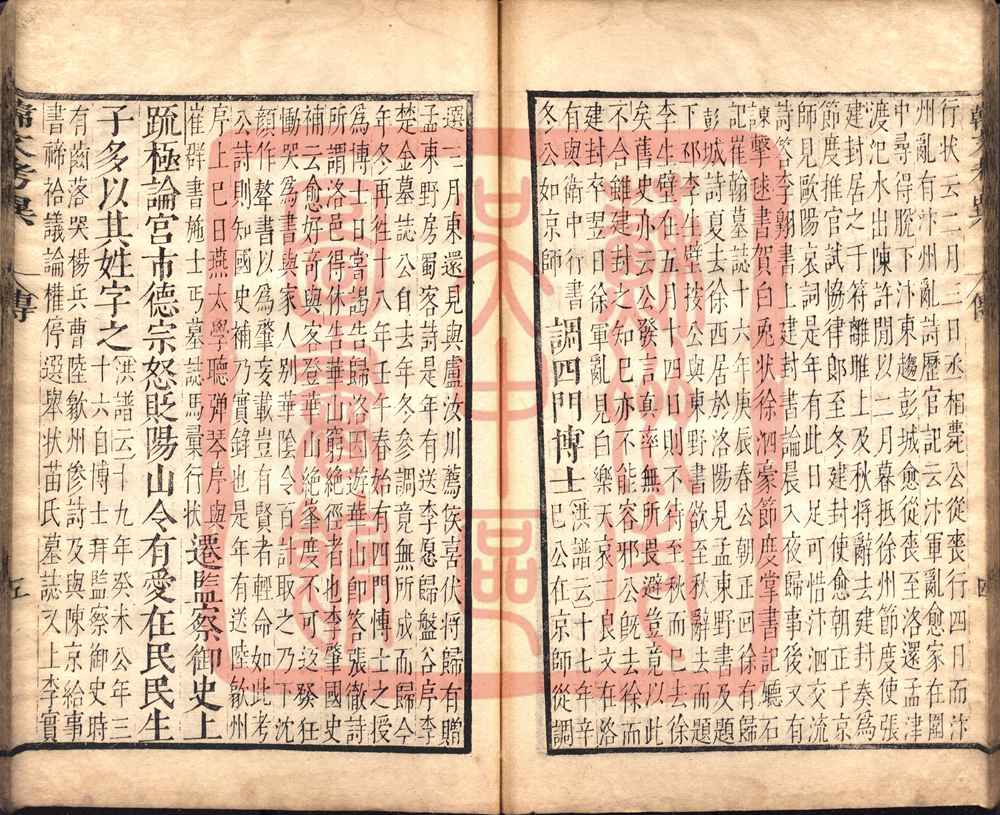 行狀云二月三日丞相薨公從喪行四日而汴
州亂有汴州亂詩歷官記云汴軍亂愈家在圍
中尋得脫下汴東趨彭城愈從喪至洛還孟津
渡汜水出陳許間以二月暮抵徐州節度使張
建封居之于符離睢上及秋將辭去建封奏為
節度推官試協律郎至冬建封使愈朝正于京
師見歐陽哀詞是年有此日足可惜汴泗交流
詩答李翺書上建封書論晨入夜歸事後又有
諫擊毬書賀白兎狀徐泗豪節度掌書記廳石
記崔翰墓誌十六年庚辰春公朝正回徐有歸
彭城詩夏去徐西居於洛陽見孟東野書及題
下邳李生壁按公與東野書欲至秋辭去而題
李生壁在五月十四日則不待至秋而已去徐
矣舊史亦云公發言真率無所畏避豈竟以此
不合雖建封之知已亦不能容邪公旣去徐而
建封卒翌日徐軍亂見白樂天哀二良文在洛
有與衛中行書調四門博士洪譜云十七年辛
冬公如京師巳公在京師從調
選三月東還見與盧汝川薦侯喜伏將歸有贈
孟東野房蜀客詩是年有送李愿歸盤谷序李
楚金墓誌公自去年冬參調竟無所成而歸今
年冬再往十八年壬午春始有四門博士之授
為博士日嘗謁告歸洛因遊華山即答張徹詩
所謂洛邑得休告華山窮絶徑者也李肇國史
補云愈好奇與客登華山絶峯度不可返發狂
慟哭為書與家人別華陰令百計取之乃下沈
顏作聲書以為肇妄載豈有賢者輕命如此考
公詩則知國史補乃實錄也是年有送陸歙州
序上巳日燕太學聽彈琴序與
崔羣書施士丐墓誌馬彙行狀遷監察御史上
疏極論宮市德宗怒貶陽山令有愛在民民生
子多以其姓字之洪譜云十九年癸未公年三
十六自博士拜監察御史時
有齒落哭楊兵曹陸歙州慘詩及與陳京給事
書禘祫議論權停選舉狀苗氏墓誌又上李實
韓文考異
傳
五